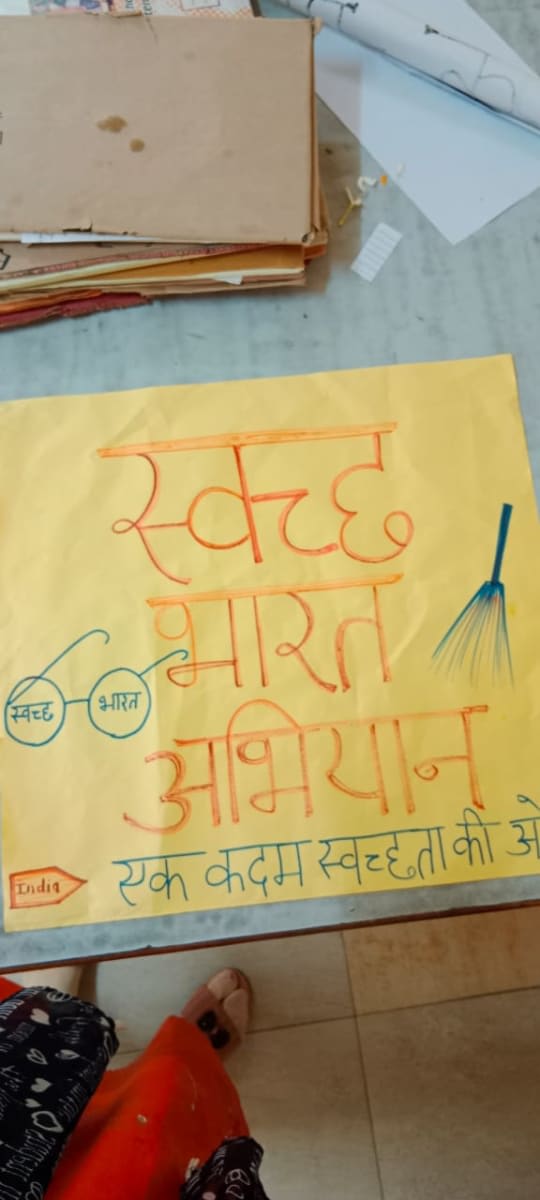 स्वच्छ
भारत
स्वच्छ भारत
अभियान
India
एक कदम स्वच्छता की ओ